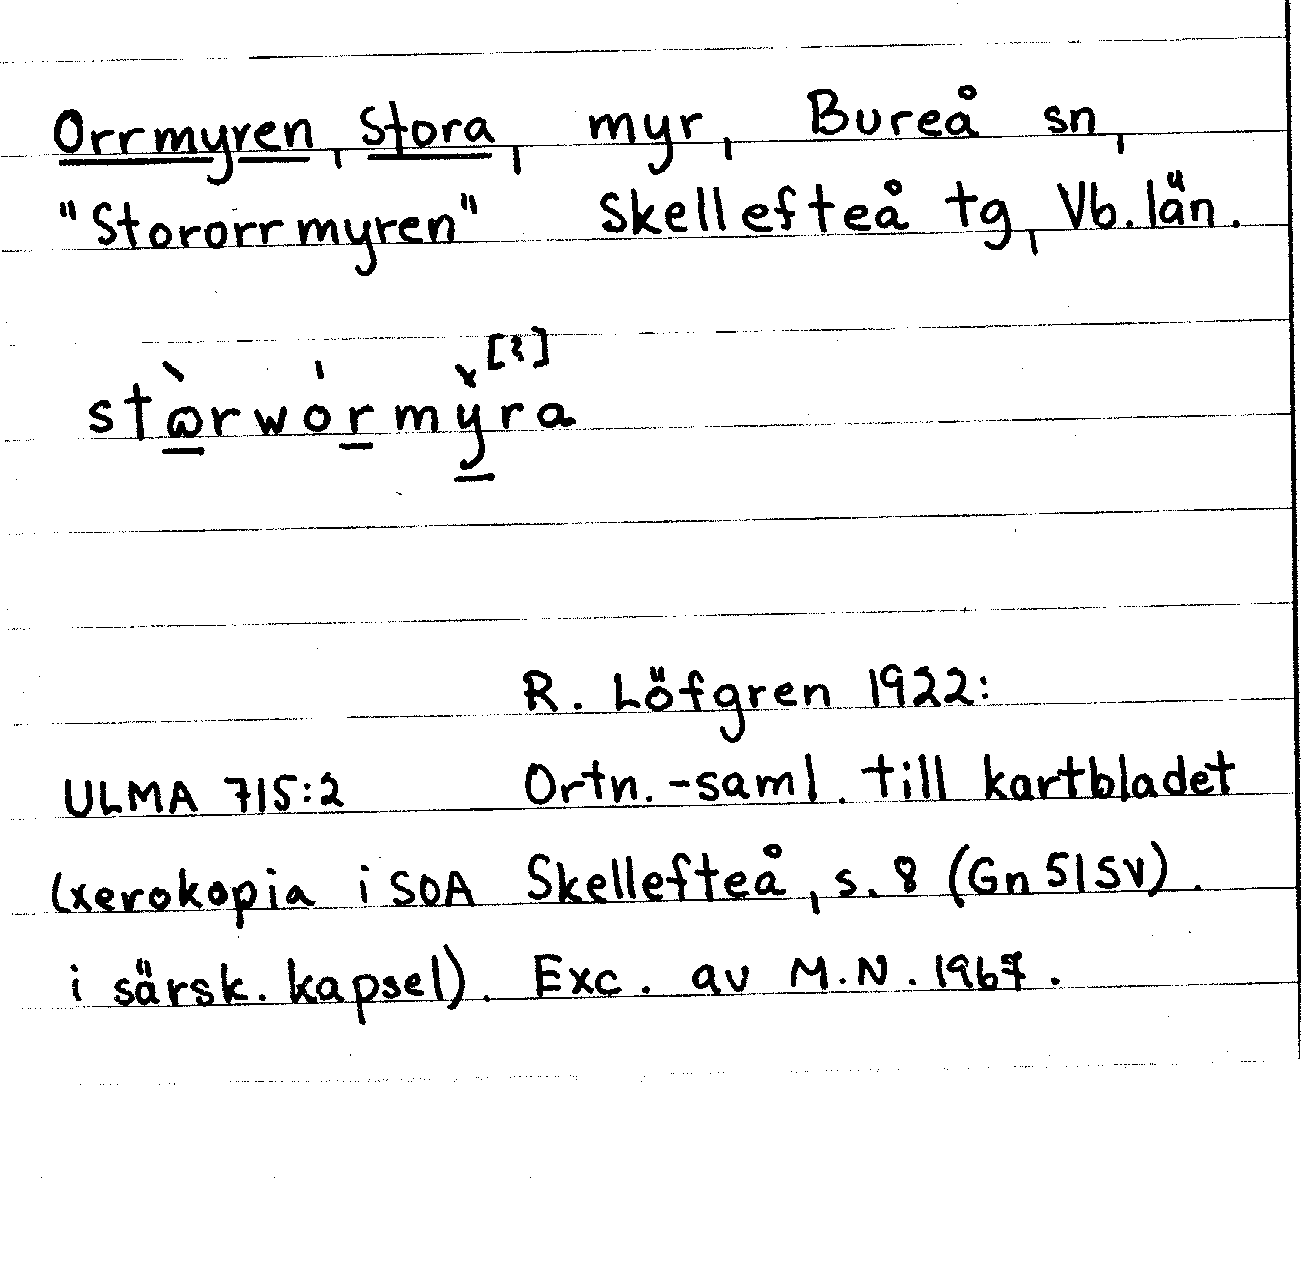 Orrmyren, Stora, myr, Bureå sn,
"Stororrmyren" Skellefteå tg, Vb. län.
R. Löfgren 1922:
ULMA 715:2 Ortn.-saml. till kartbladet
(xerokopia i SOA Skellefteå, s. 8 (Gn 515V).
i särsk. kapsel). Exc. av M.N. 1967.